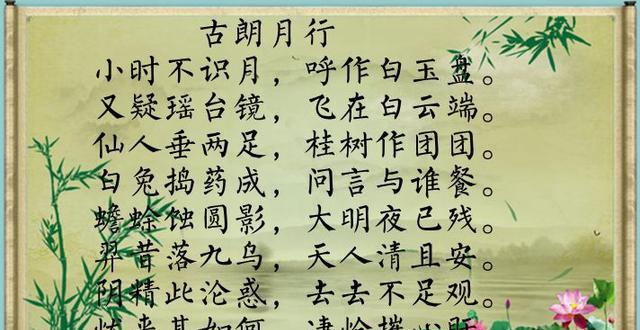 古朗月行
小时不识月，呼作白玉盘。
又疑瑶台镜，飞在白云端。
仙人垂两足，桂树作团团。
白兔捣药成，问言与谁餐。
蟾蜍蚀圆影，大明夜已残。
羿昔落九鸟，天人清且安。
阴精此沦惑，去去不足观。
来其如何 凄怆摧心